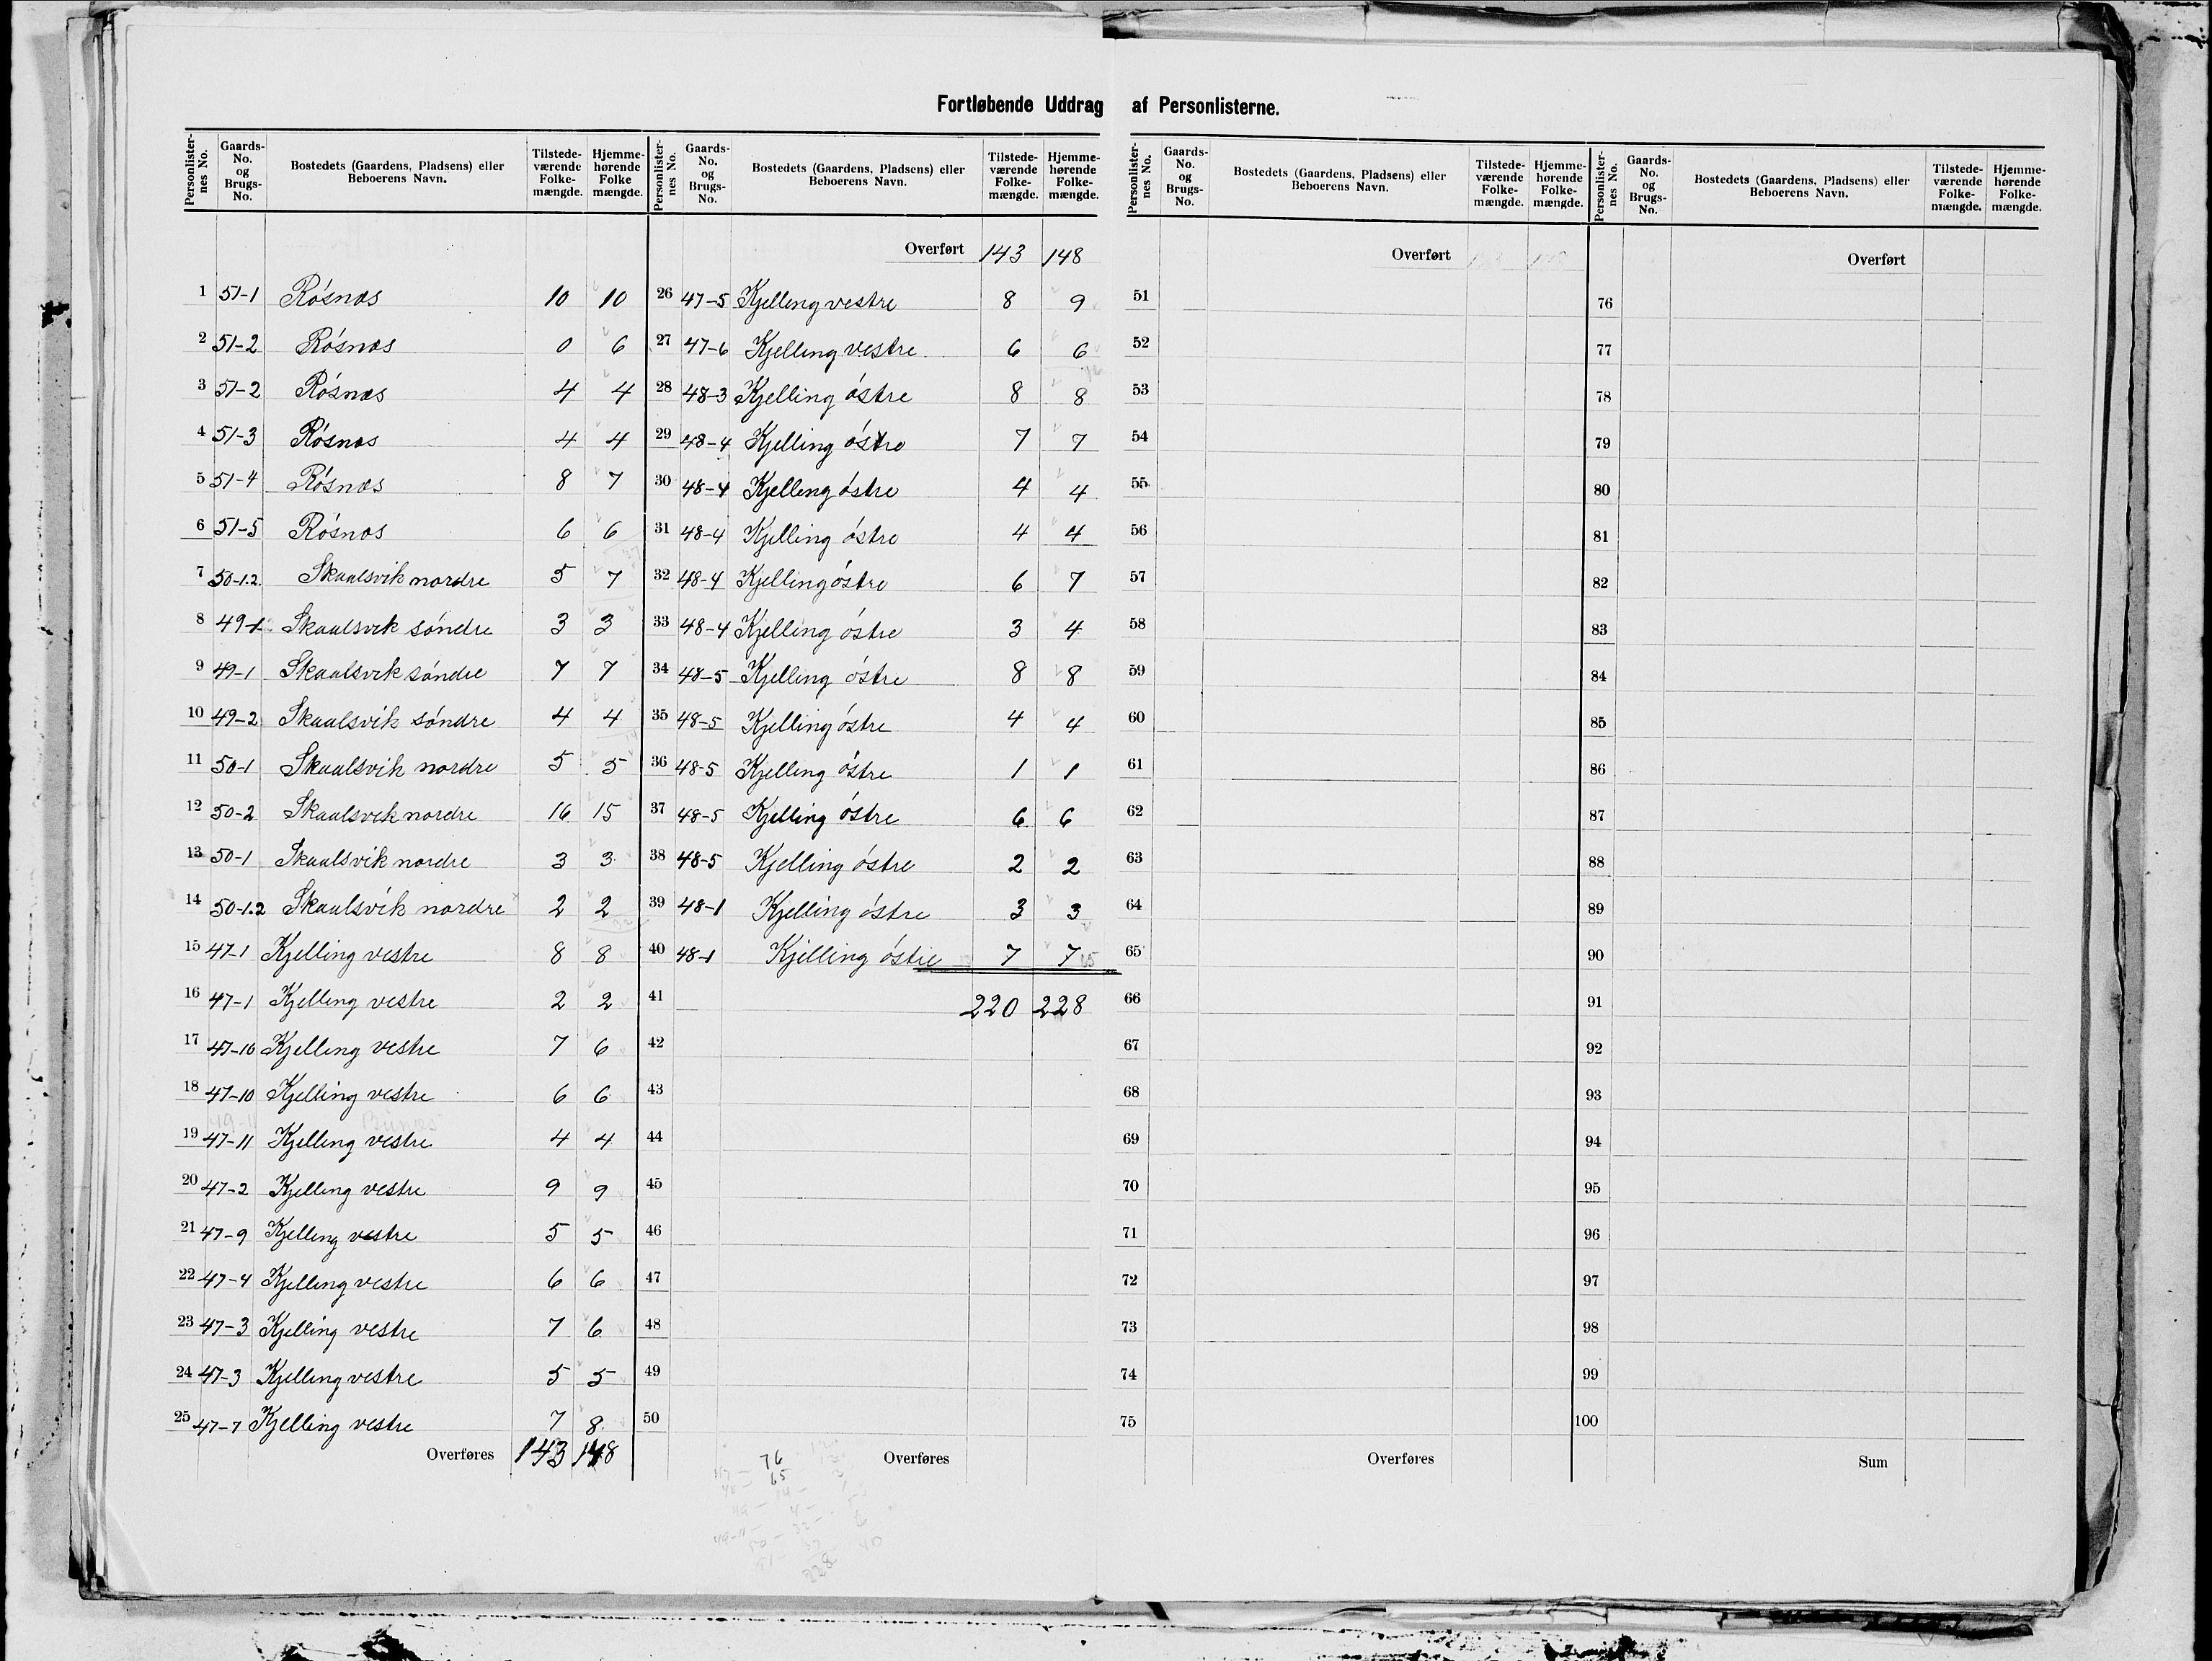 Fortløbende Uddrag af Personlisterne.
Personlister-nes No. | Gaards-No. og Brugs-No. | Bostedets (Gaardens, Pladsens) eller Beboerens Navn. | Tilstede-værende Folke-mængde. | Hjemme-hørende Folke mængde.
1 51-1 Røsnæs 10 10
2 51-2 Røsnæs 0 6
3 51-2 Røsnæs 4 4
4 51-3 Røsnæs 4 4
5 51-4 Røsnæs 8 7
6 51-5 Røsnæs 6 6
7 50-1.2 Skaalsvik nordre 5 7
8 49-1 Skaalsvik søndre 3 3
9 49-1 Skaalsvik søndre 7 7
10 49-2 Skaalsvik søndre 4 4
11 50-1 Skaalsvik nordre 5 5
12 50-2 Skaalsvik nordre 16 15
13 50-1 Skaalsvik nordre 3 3
14 50-1.2 Skaalsvik nordre 2 2
15 47-1 Kjelling vestre 8 8
16 47-1 Kjelling vestre 2 2
17 47-10 Kjelling vestre 7 6
18 47-10 Kjelling vestre 6 6
19 47-11 Kjelling vestre 4 4
20 47-2 Kjelling vestre 9 9
21 47-9 Kjelling vestre 5 5
22 47-4 Kjelling vestre 6 6
23 47-3 Kjelling vestre 7 6
24 47-3 Kjelling vestre 5 5
25 47-7 Kjelling vestre 7 8
Overføres 143 148
Personlister-nes No. | Gaards-No. og Brugs-No. | Bostedets (Gaardens, Pladsens) eller Beboerens Navn. | Tilstede-værende Folke-mængde. | Hjemme-hørende Folke-mængde.
Overført 143 148
26 47-5 Kjelling vestre 8 9
27 47-6 Kjelling vestre 6 6
28 48-3 Kjelling østre 8 8
29 48-4 Kjelling østre 7 7
30 48-4 Kjelling østre 4 4
31 48-4 Kjelling østre 4 4
32 48-4 Kjelling østre 6 7
33 48-4 Kjelling østre 3 4
34 48-5 Kjelling østre 8 8
35 48-5 Kjelling østre 4 4
36 48-5 Kjelling østre 1 1
37 48-5 Kjelling østre 6 6
38 48-5 Kjelling østre 2 2
39 48-1 Kjelling østre 3 3
40 48-1 Kjelling østre 7 7
41 220 228
42
43
44
45
46
47
48
49
50
Overføres
76
65
228
Personlister-nes No. | Gaards-No. og Brugs-No. | Bostedets (Gaardens, Pladsens) eller Beboerens Navn. | Tilstede-værende Folke-mængde. | Hjemme-hørende Folke-mængde.
Overført
51
52
53
54
55
56
57
58
59
60
61
62
63
64
65
66
67
68
69
70
71
72
73
74
75
Overføres
Personlister-nes No. | Gaards-No. og Brugs-No. | Bostedets (Gaardens, Pladsens) eller Beboerens Navn. | Tilstede-værende Folke-mængde. | Hjemme-hørende Folke-mængde.
Overført
76
77
78
79
80
81
82
83
84
85
86
87
88
89
90
91
92
93
94
95
96
97
98
99
100
Sum